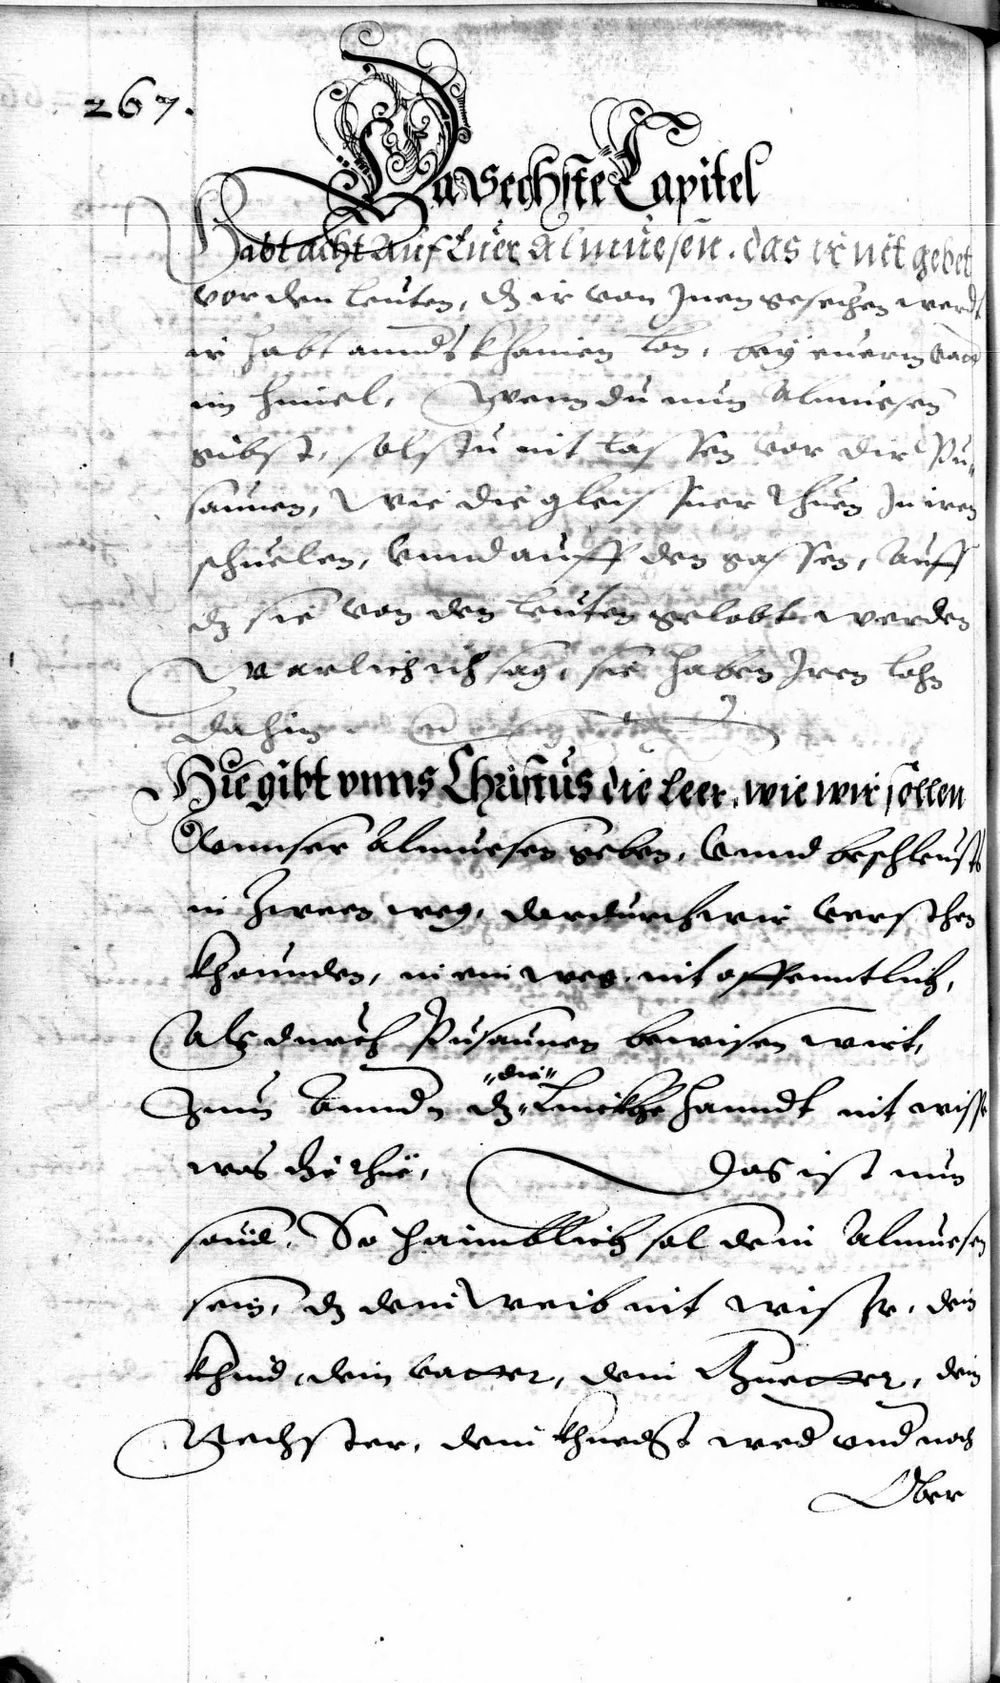 267.
Das sechste Capitel
Habt acht auf Euer Almuesen. das ir nit gebet
vor den leuten, dz ir von Inen gesechen werdt
ir habt annds khainen lon, bey euerm vatter
im himel, Wenn du nun Almuesen
gibst, solstu nit lassen vor dir Pu„
saunen, wie die gleissner thuen In iren
schuelen, vnnd auff den gassen, Auff
dz sie von den leuten gelobt werden
Warlich ich sag, sie haben Iren lohn
dahin
Hie gibt vnns Christus die leer, wie wir sollen
Vnnser Almuesen geben, Vnnd beschleusts
in Zween weg, dardurch wir versthen
khounden, in ein weg nit offenntlich,
Als durch Pusaunen bewisen wirt,
Zum Annd dz „die„ Linckhe hanndt nit wisse
was die thue, Das ist nun
souil, So haimblich sol dein Almuesen
sein, dz dein Weib nit wisse, dein
khind, dein vatter, dein Muetter, dein
Schwester, dein khnecht wed vnd noch
Ober